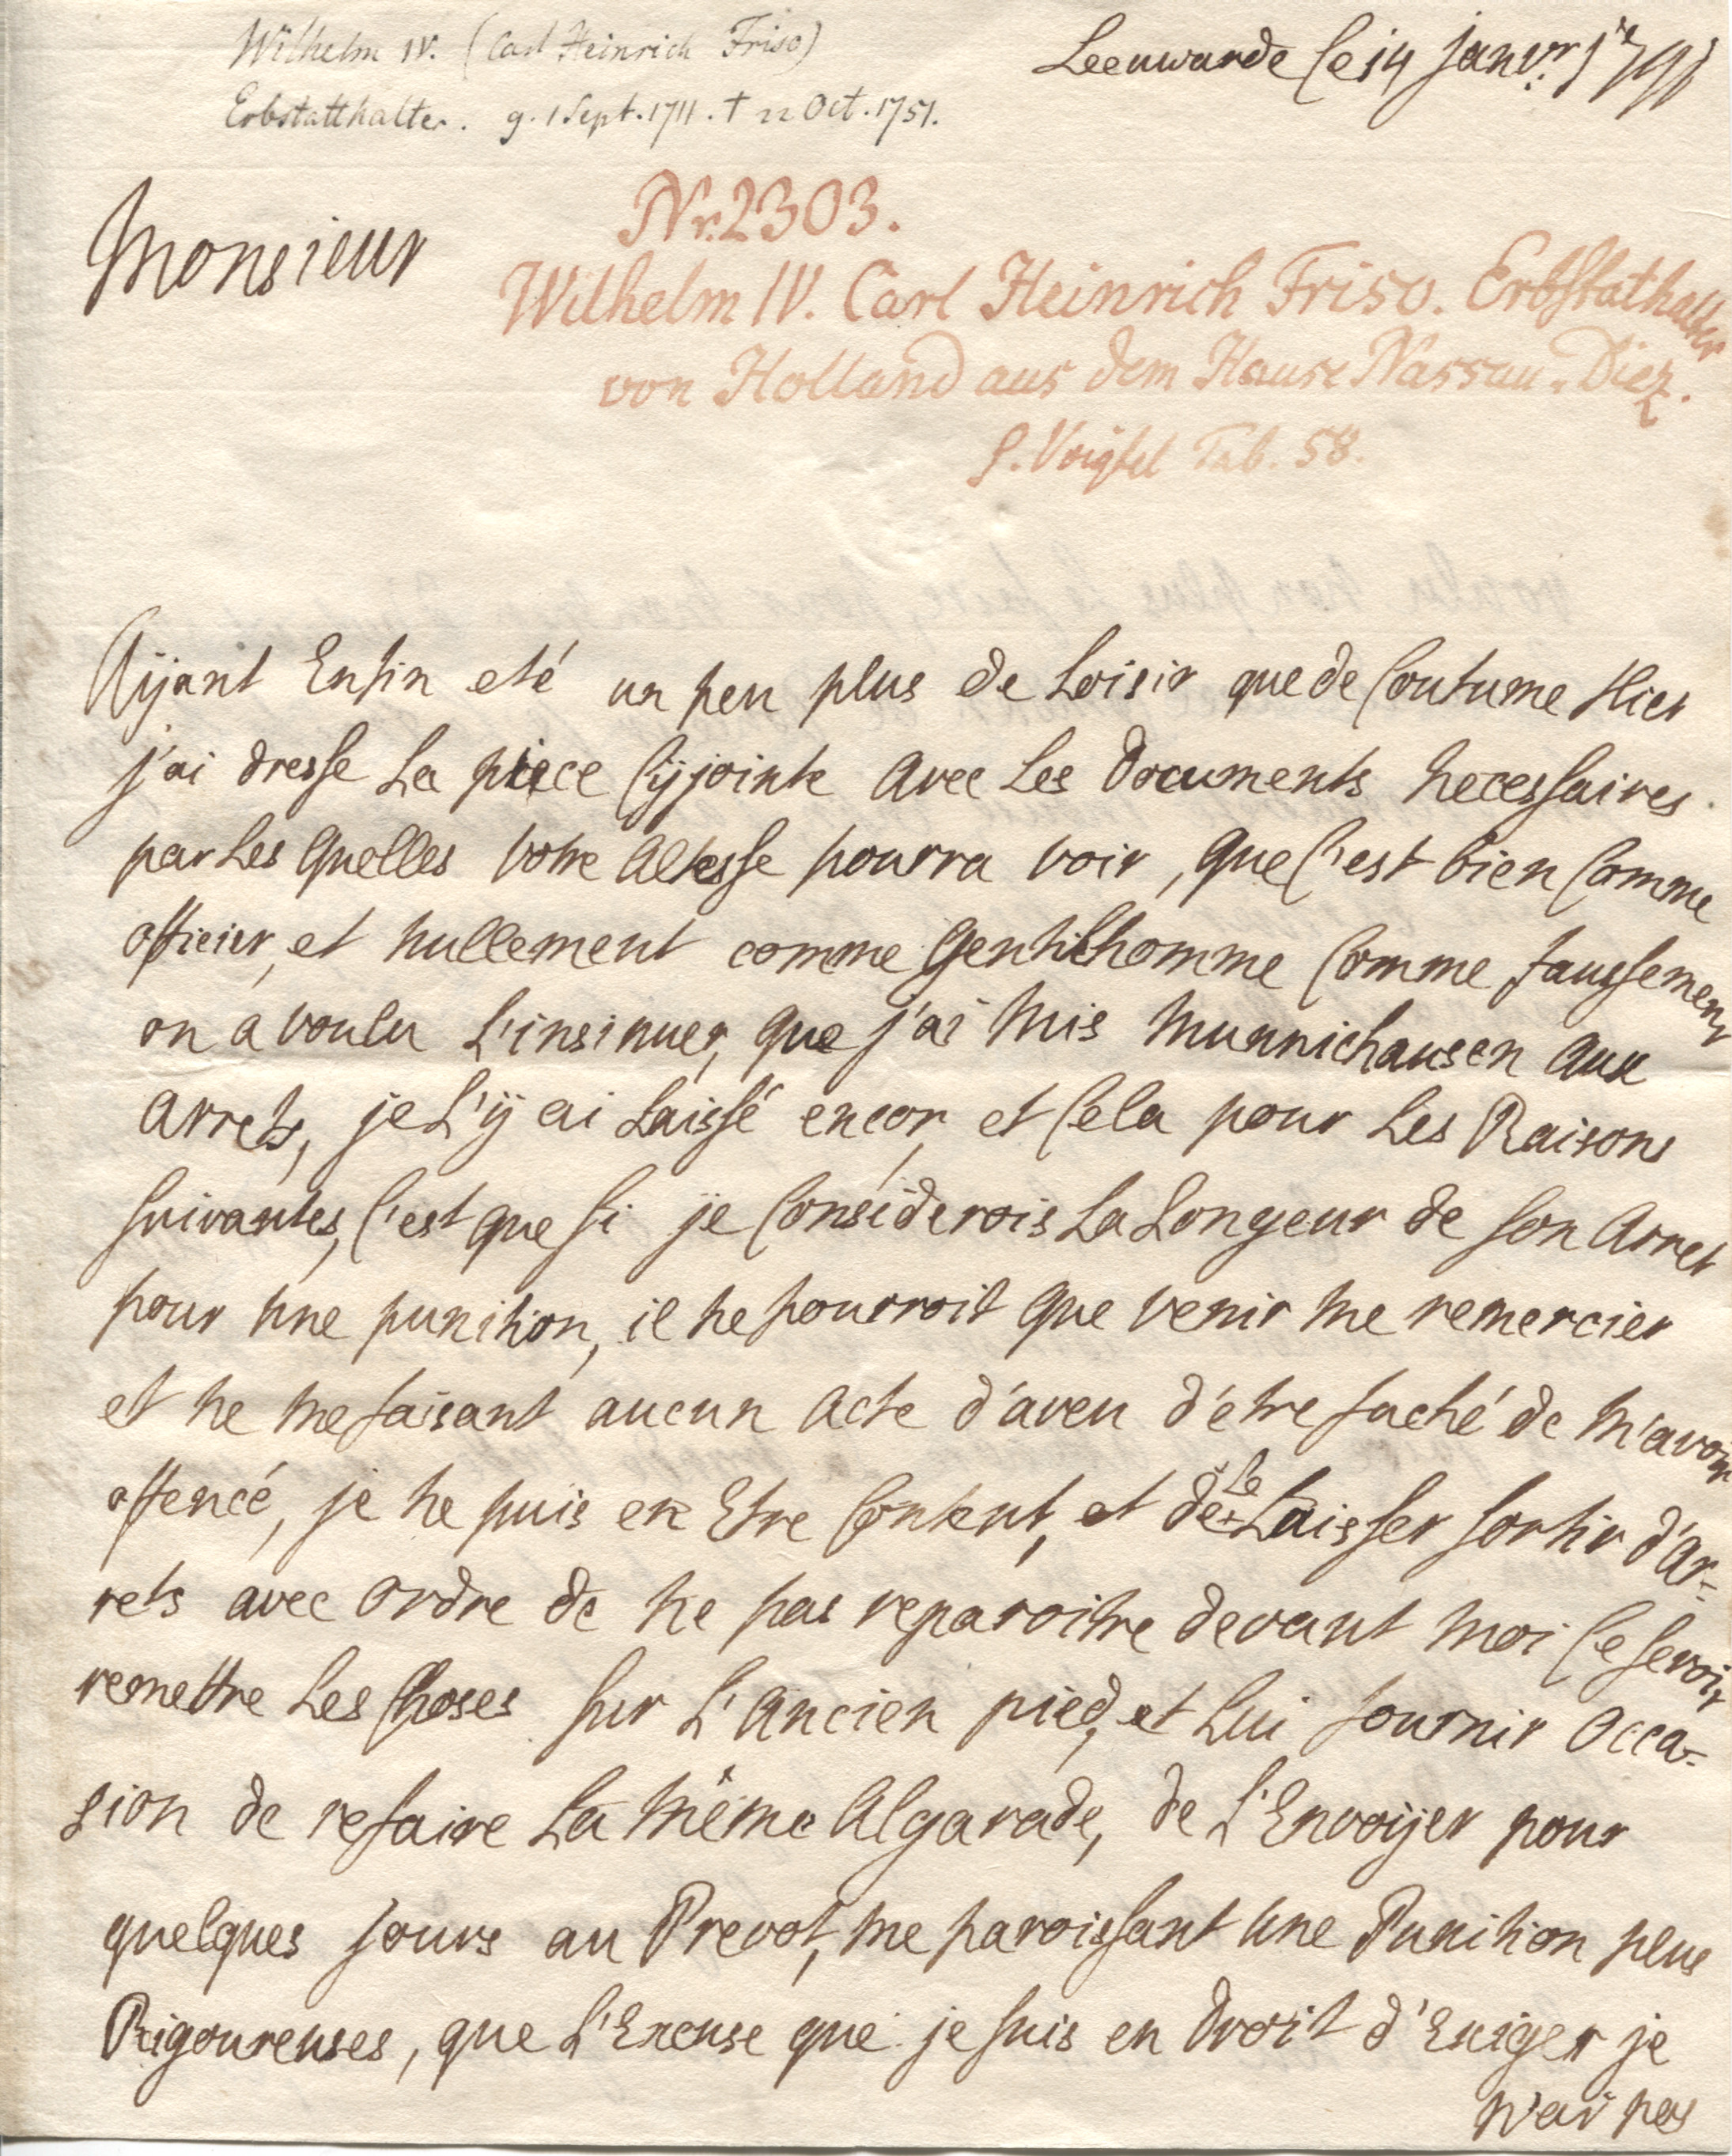 Wilhelm IV. (Carl Heinrich Friso)
Erbstatthalter. g. 1 Sept. 1711. † 22 Oct. 1751.
Leeuwarde le 14 janvr.
Monsieur
Nr. 2303.
Wilhelm IV. Carl Heinrich Friso. Erbstathalter
von Holland aus dem Hause Nassau-Diez.
S. Voigtel Tab. 58.
Aÿant Enfin eté un peu plus de Loisir que de Coutume Hier
j'ai dresse La piece Cÿjointe avec Les Documents necessaires.
par Les quelles votre altesse pourra voir, que C'est bien Comme
officier, et nullement comme gentilhomme Comme faussement
on a voulu L'insinuer, que j'ai mis Munnichausen aux
arrets, je L'ÿ ai Laissé encor, et Cela pour Les Raisons
suivantes, C'est que si je Considerois La Longeur de son arret
pour une punition, il ne pourroit que venir me remercier
et ne me faisant aucun acte d'aveu d'étre faché de m'avoir
offencé, je ne puis en Etre Content, et de Le Laisser sortir d'ar-
rets avec ordre de ne pas reparoitre devant moi Ce seroit
remettre Les Choses sur L'ancien pied, et Lui fournir occa-
sion de refaire La même algarade, de L'Envoÿer pour
quelques jours au Prevot, me paroissant une Punition plus
Rigoureuses, que L'Excuse que je suis en Droit d'Exiger je
n'ai pas